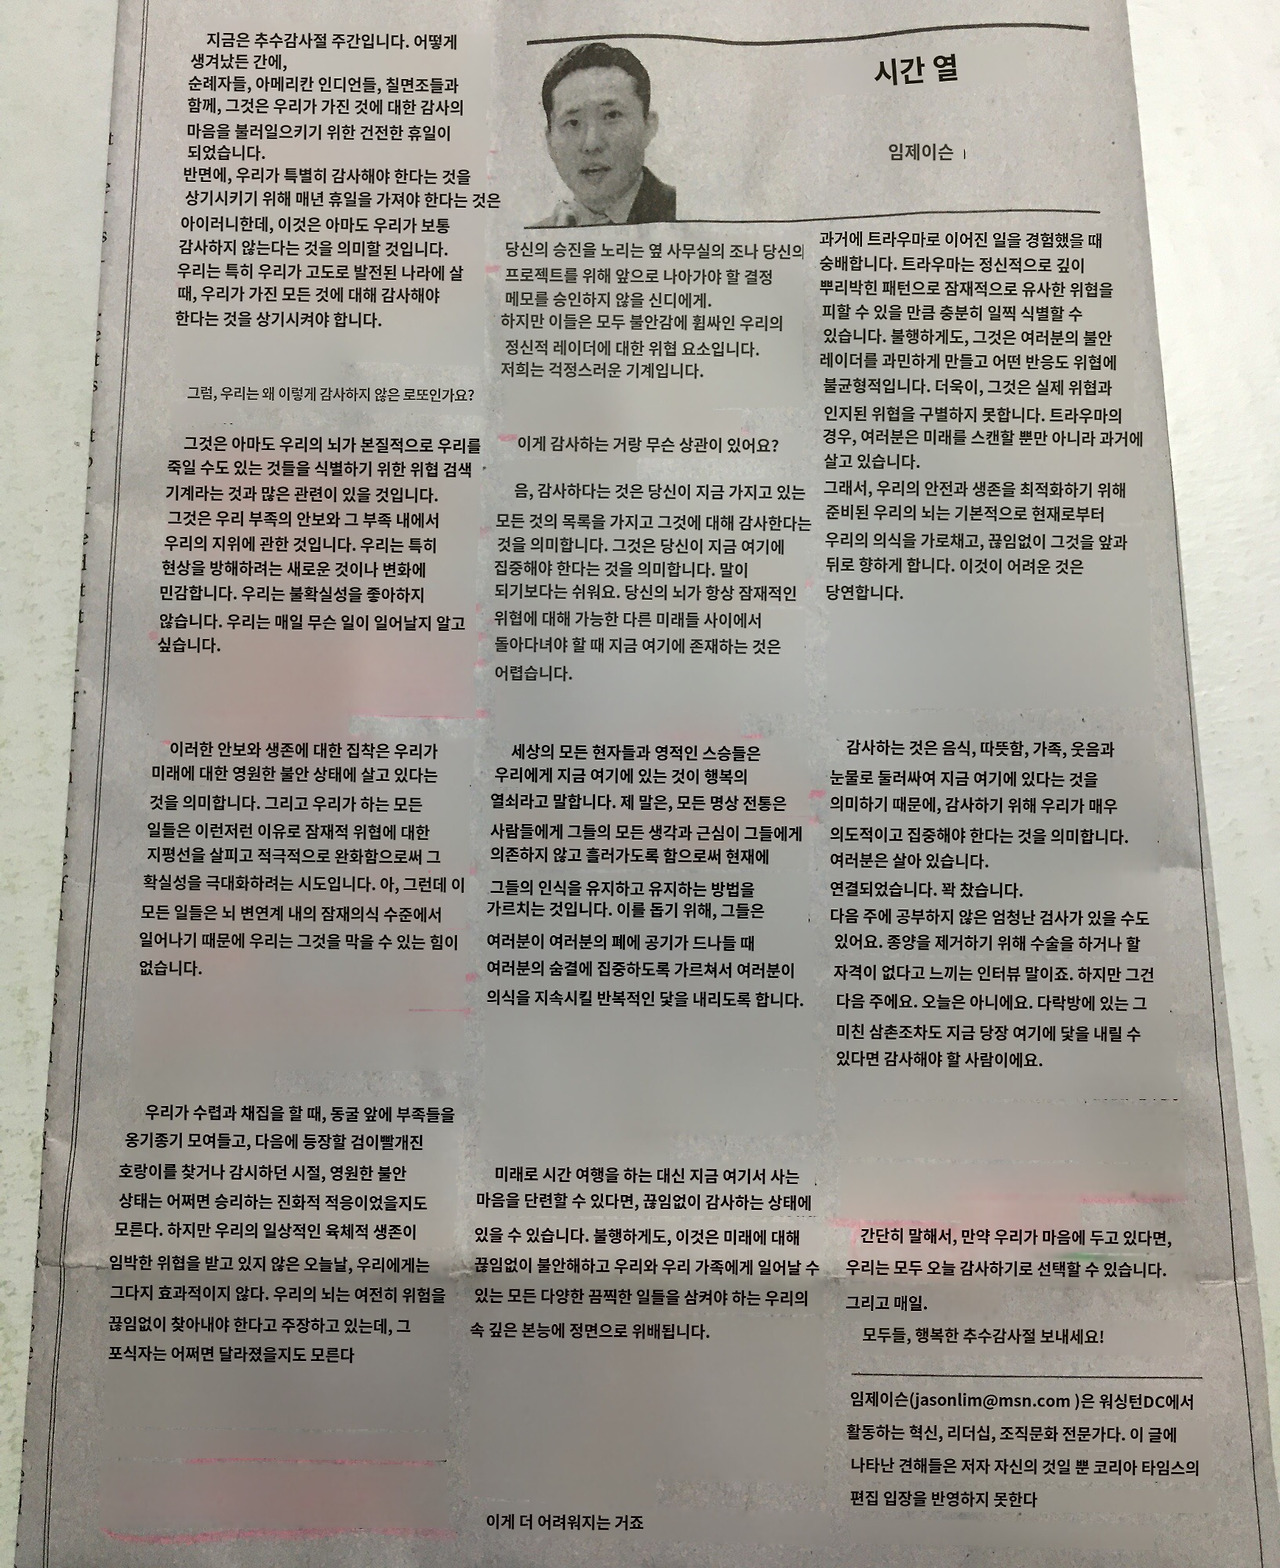 시간 열
임제이슨
지금은 추수감사절 주간입니다. 어떻게
생겨났든 간에,
순례자들, 아메리칸 인디언들, 칠면조들과
함께, 그것은 우리가 가진 것에 대한 감사의
마음을 불러일으키기 위한 건전한 휴일이
되었습니다.
반면에, 우리가 특별히 감사해야 한다는 것을
상기시키기 위해 매년 휴일을 가져야 한다는 것은
아이러니한데, 이것은 아마도 우리가 보통
감사하지 않는다는 것을 의미할 것입니다.
우리는 특히 우리가 고도로 발전된 나라에 살
때, 우리가 가진 모든 것에 대해 감사해야
한다는 것을 상기시켜야 합니다.
그럼, 우리는 왜 이렇게 감사하지 않은 로또인가요?
그것은 아마도 우리의 뇌가 본질적으로 우리를
죽일 수도 있는 것들을 식별하기 위한 위협 검색
기계라는 것과 많은 관련이 있을 것입니다.
그것은 우리 부족의 안보와 그 부족 내에서
우리의 지위에 관한 것입니다. 우리는 특히
현상을 방해하려는 새로운 것이나 변화에
민감합니다. 우리는 불확실성을 좋아하지
않습니다. 우리는 매일 무슨 일이 일어날지 알고
싶습니다.
이러한 안보와 생존에 대한 집착은 우리가
미래에 대한 영원한 불안 상태에 살고 있다는
것을 의미합니다. 그리고 우리가 하는 모든
일들은 이런저런 이유로 잠재적 위협에 대한
지평선을 살피고 적극적으로 완화함으로써 그
확실성을 극대화하려는 시도입니다. 아, 그런데 이
모든 일들은 뇌 변연계 내의 잠재의식 수준에서
일어나기 때문에 우리는 그것을 막을 수 있는 힘이
없습니다.
우리가 수렵과 채집을 할 때, 동굴 앞에 부족들을
옹기종기 모여들고, 다음에 등장할 검이빨개진
호랑이를 찾거나 감시하던 시절, 영원한 불안
상태는 어쩌면 승리하는 진화적 적응이었을지도
모른다. 하지만 우리의 일상적인 육체적 생존이
임박한 위협을 받고 있지 않은 오늘날, 우리에게는
그다지 효과적이지 않다. 우리의 뇌는 여전히 위험을
끊임없이 찾아내야 한다고 주장하고 있는데, 그
포식자는 어쩌면 달라졌을지도 모른다
당신의 승진을 노리는 옆 사무실의 조나 당신의
프로젝트를 위해 앞으로 나아가야 할 결정
메모를 승인하지 않을 신디에게.
하지만 이들은 모두 불안감에 휩싸인 우리의
정신적 레이더에 대한 위협 요소입니다.
저희는 걱정스러운 기계입니다.
이게 감사하는 거랑 무슨 상관이 있어요?
음, 감사하다는 것은 당신이 지금 가지고 있는
모든 것의 목록을 가지고 그것에 대해 감사한다는
것을 의미합니다. 그것은 당신이 지금 여기에
집중해야 한다는 것을 의미합니다. 말이
되기보다는 쉬워요. 당신의 뇌가 항상 잠재적인
위협에 대해 가능한 다른 미래들 사이에서
돌아다녀야 할 때 지금 여기에 존재하는 것은
어렵습니다.
세상의 모든 현자들과 영적인 스승들은
우리에게 지금 여기에 있는 것이 행복의
열쇠라고 말합니다. 제 말은, 모든 명상 전통은
사람들에게 그들의 모든 생각과 근심이 그들에게
의존하지 않고 흘러가도록 함으로써 현재에
그들의 인식을 유지하고 유지하는 방법을
가르치는 것입니다. 이를 돕기 위해, 그들은
여러분이 여러분의 폐에 공기가 드나들 때
여러분의 숨결에 집중하도록 가르쳐서 여러분이
의식을 지속시킬 반복적인 닻을 내리도록 합니다.
미래로 시간 여행을 하는 대신 지금 여기서 사는
마음을 단련할 수 있다면, 끊임없이 감사하는 상태에
있을 수 있습니다. 불행하게도, 이것은 미래에 대해
끊임없이 불안해하고 우리와 우리 가족에게 일어날 수
있는 모든 다양한 끔찍한 일들을 삼켜야 하는 우리의
속 깊은 본능에 정면으로 위배됩니다.
이게 더 어려워지는 거죠
과거에 트라우마로 이어진 일을 경험했을 때
숭배합니다. 트라우마는 정신적으로 깊이
뿌리박힌 패턴으로 잠재적으로 유사한 위협을
피할 수 있을 만큼 충분히 일찍 식별할 수
있습니다. 불행하게도, 그것은 여러분의 불안
레이더를 과민하게 만들고 어떤 반응도 위협에
불균형적입니다. 더욱이, 그것은 실제 위협과
인지된 위협을 구별하지 못합니다. 트라우마의
경우, 여러분은 미래를 스캔할 뿐만 아니라 과거에
살고 있습니다.
그래서, 우리의 안전과 생존을 최적화하기 위해
준비된 우리의 뇌는 기본적으로 현재로부터
우리의 의식을 가로채고, 끊임없이 그것을 앞과
뒤로 향하게 합니다. 이것이 어려운 것은
당연합니다.
감사하는 것은 음식, 따뜻함, 가족, 웃음과
눈물로 둘러싸여 지금 여기에 있다는 것을
의미하기 때문에, 감사하기 위해 우리가 매우
의도적이고 집중해야 한다는 것을 의미합니다.
여러분은 살아 있습니다.
연결되었습니다. 꽉 찼습니다.
다음 주에 공부하지 않은 엄청난 검사가 있을 수도
있어요. 종양을 제거하기 위해 수술을 하거나 할
자격이 없다고 느끼는 인터뷰 말이죠. 하지만 그건
다음 주에요. 오늘은 아니에요. 다락방에 있는 그
미친 삼촌조차도 지금 당장 여기에 닻을 내릴 수
있다면 감사해야 할 사람이에요.
간단히 말해서, 만약 우리가 마음에 두고 있다면,
우리는 모두 오늘 감사하기로 선택할 수 있습니다.
그리고 매일.
모두들, 행복한 추수감사절 보내세요!
임제이슨(jasonlim@msn.com )은 워싱턴DC에서
활동하는 혁신, 리더십, 조직문화 전문가다. 이 글에
나타난 견해들은 저자 자신의 것일 뿐 코리아 타임스의
편집 입장을 반영하지 못한다